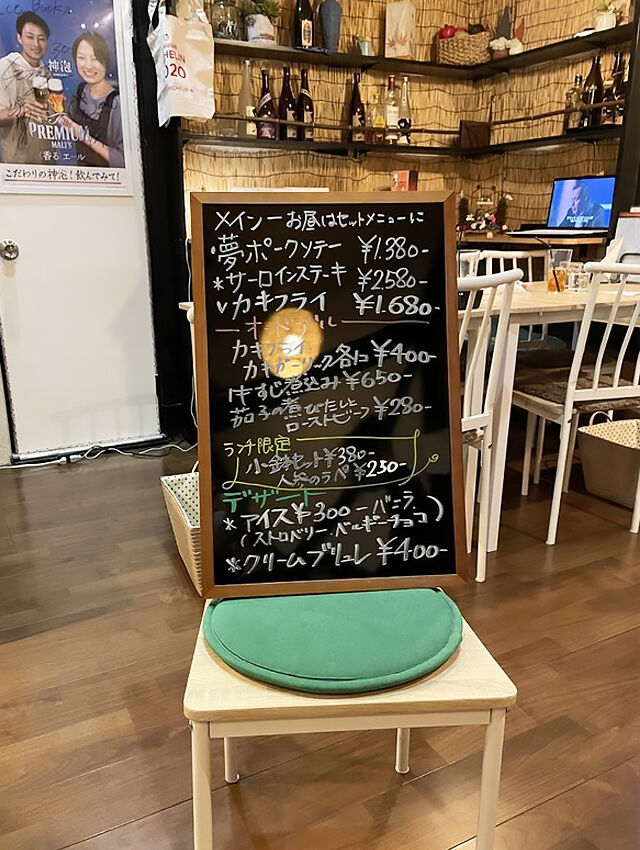 神泡
PREMIUM
MALT'S
〈香る〉エール
こだわりの神泡!飲んでみて!
2020
メイン ー お昼はセットメニューに
・夢ポークソテー ¥1.380-
*サーロインステーキ ¥2.580-
v カキフライ ¥1.680-
オードヴル
カキフライ
カキガーリック各1コ ¥400-
牛すじ煮込み ¥650-
茄子の煮びたしと
ローストビーフ ¥280-
ランチ限定
小鉢セット ¥380-
人参のラペ ¥230-
デザート
*アイス ¥300-(バニラ、
ストロベリー・ベルギーチョコ)
*クリームブリュレ ¥400-